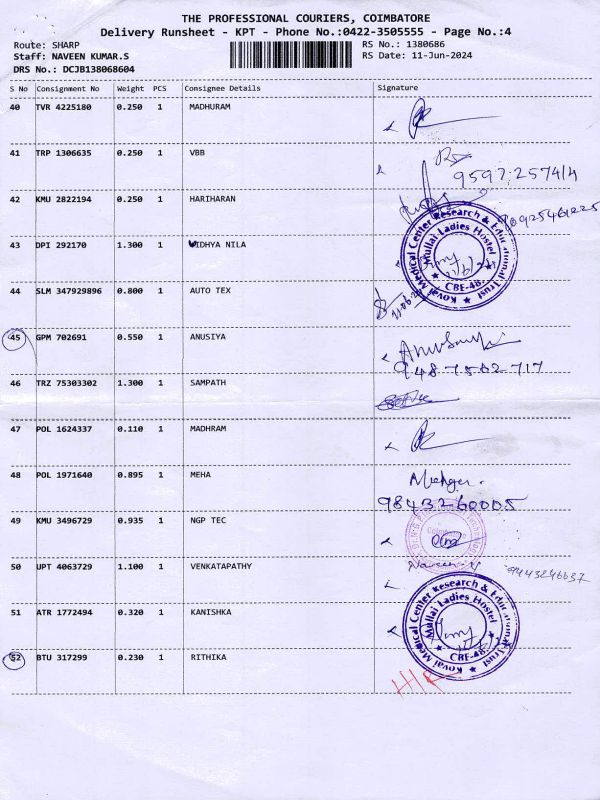 THE PROFESSIONAL COURIERS, COIMBATORE
Delivery Runsheet - KPT - Phone No.:0422-3505555 - Page No.:4
Route: SHARP RS No.: 1380686
Staff: NAVEEN KUMAR.S RS Date: 11-Jun-2024
DRS No.: DCJB138068604
S No Consignment No Weight PCS Consignee Details Signature
40 TVR 4225180 0.250 1 MADHURAM
41 TRP 1306635 0.250 1 VBB
9597257414
42 KMU 2822194 0.250 1 HARIHARAN
43 DPI 292170 1.300 1 VIDHYA NILA
Kovai Medical Center Research & Educational Trust
Mullai Ladies Hostel
CBE-48.
44 SLM 347929896 0.800 1 AUTO TEX
45 GPM 702691 0.550 1 ANUSIYA
9487502717
46 TRZ 75303302 1.300 1 SAMPATH
47 POL 1624337 0.110 1 MADHRAM
48 POL 1971640 0.895 1 MEHA
9843260005
49 KMU 3496729 0.935 1 NGP TEC
Coimbatore
50 UPT 4063729 1.100 1 VENKATAPATHY
Naveen. N 9443246637
51 ATR 1772494 0.320 1 KANISHKA
Kovai Medical Center Research & Educational Trust
Mullai Ladies Hostel
CBE-48.
52 BTU 317299 0.230 1 RITHIKA
H/R